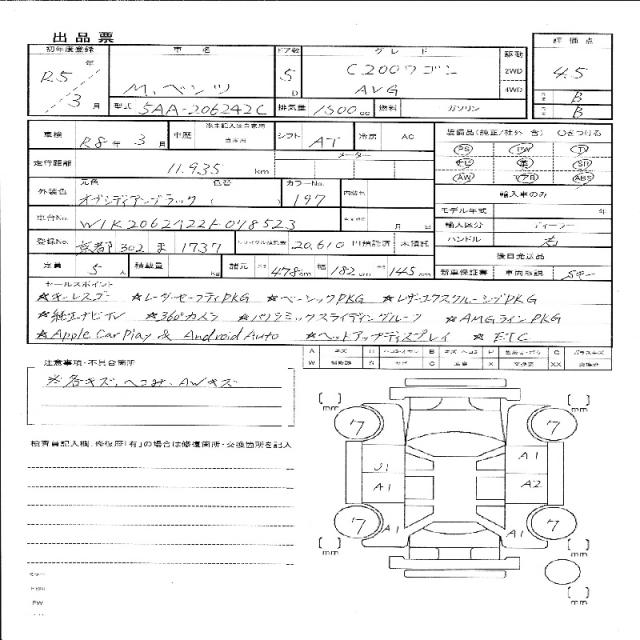 出品票
初年度登録 車名 ドア数 グレード 駆動 評価点
R5 年 3 月 M.ベンツ 5 D C200ワゴン AVG 2WD 4WD 4.5
型式 5AA-206242C 排気量 1500 cc 燃料 ガソリン B B
車検 R8 年 3 月 車歴 シフト AT 冷房 AC 装備品(純正/社外 含) ○をつける
PS PW TV
走行距離 11.935 km メーター SR
AW ABS
外装色 元色 オブシディアンブラック 色替 ( カラーNo. 197 内装色 輸入車のみ
モデル年式 年
車台No. W1K2062422F078523 月 日 輸入区分 ディーラー
登録No. 京都 302 ま 1737 リサイクル預託金 20,610 円預託済 未預託 ハンドル 右
後日発送品
定員 5 人 積載量 kg 諸元 478 cm 幅 182 cm 145 cm 新車保証書 車両取説 Sキー
セールスポイント
☆キーレスゴー ☆レーダーセーフティPKG ☆ベーシックPKG ☆レザーエクスクルーシブPKG
☆純正ナビTV ☆360°カメラ ☆パノラミックスライディングルーフ ☆AMGラインPKG
☆Apple CarPlay & Android Auto ☆ヘッドアップディスプレイ ☆ETC
注意事項・不具合箇所
※各キズ、ヘコみ、AWキズ
検査員記入欄:修復歴「有」の場合は修復箇所・交換箇所を記入
[ ] mm [ ] mm
7 7
J1 A1
A1 A2
7 A1 A1 7
[ ] mm [ ] mm
[ ] mm